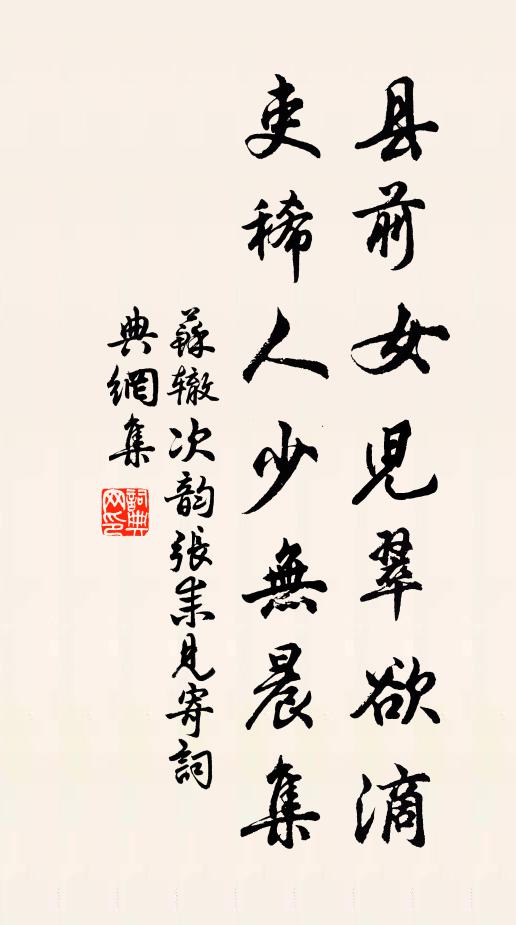 县前女児翠欲滴
吏稀人少無晨集
蘇辙次韵張耒見寄詞
典網集
詞典网印